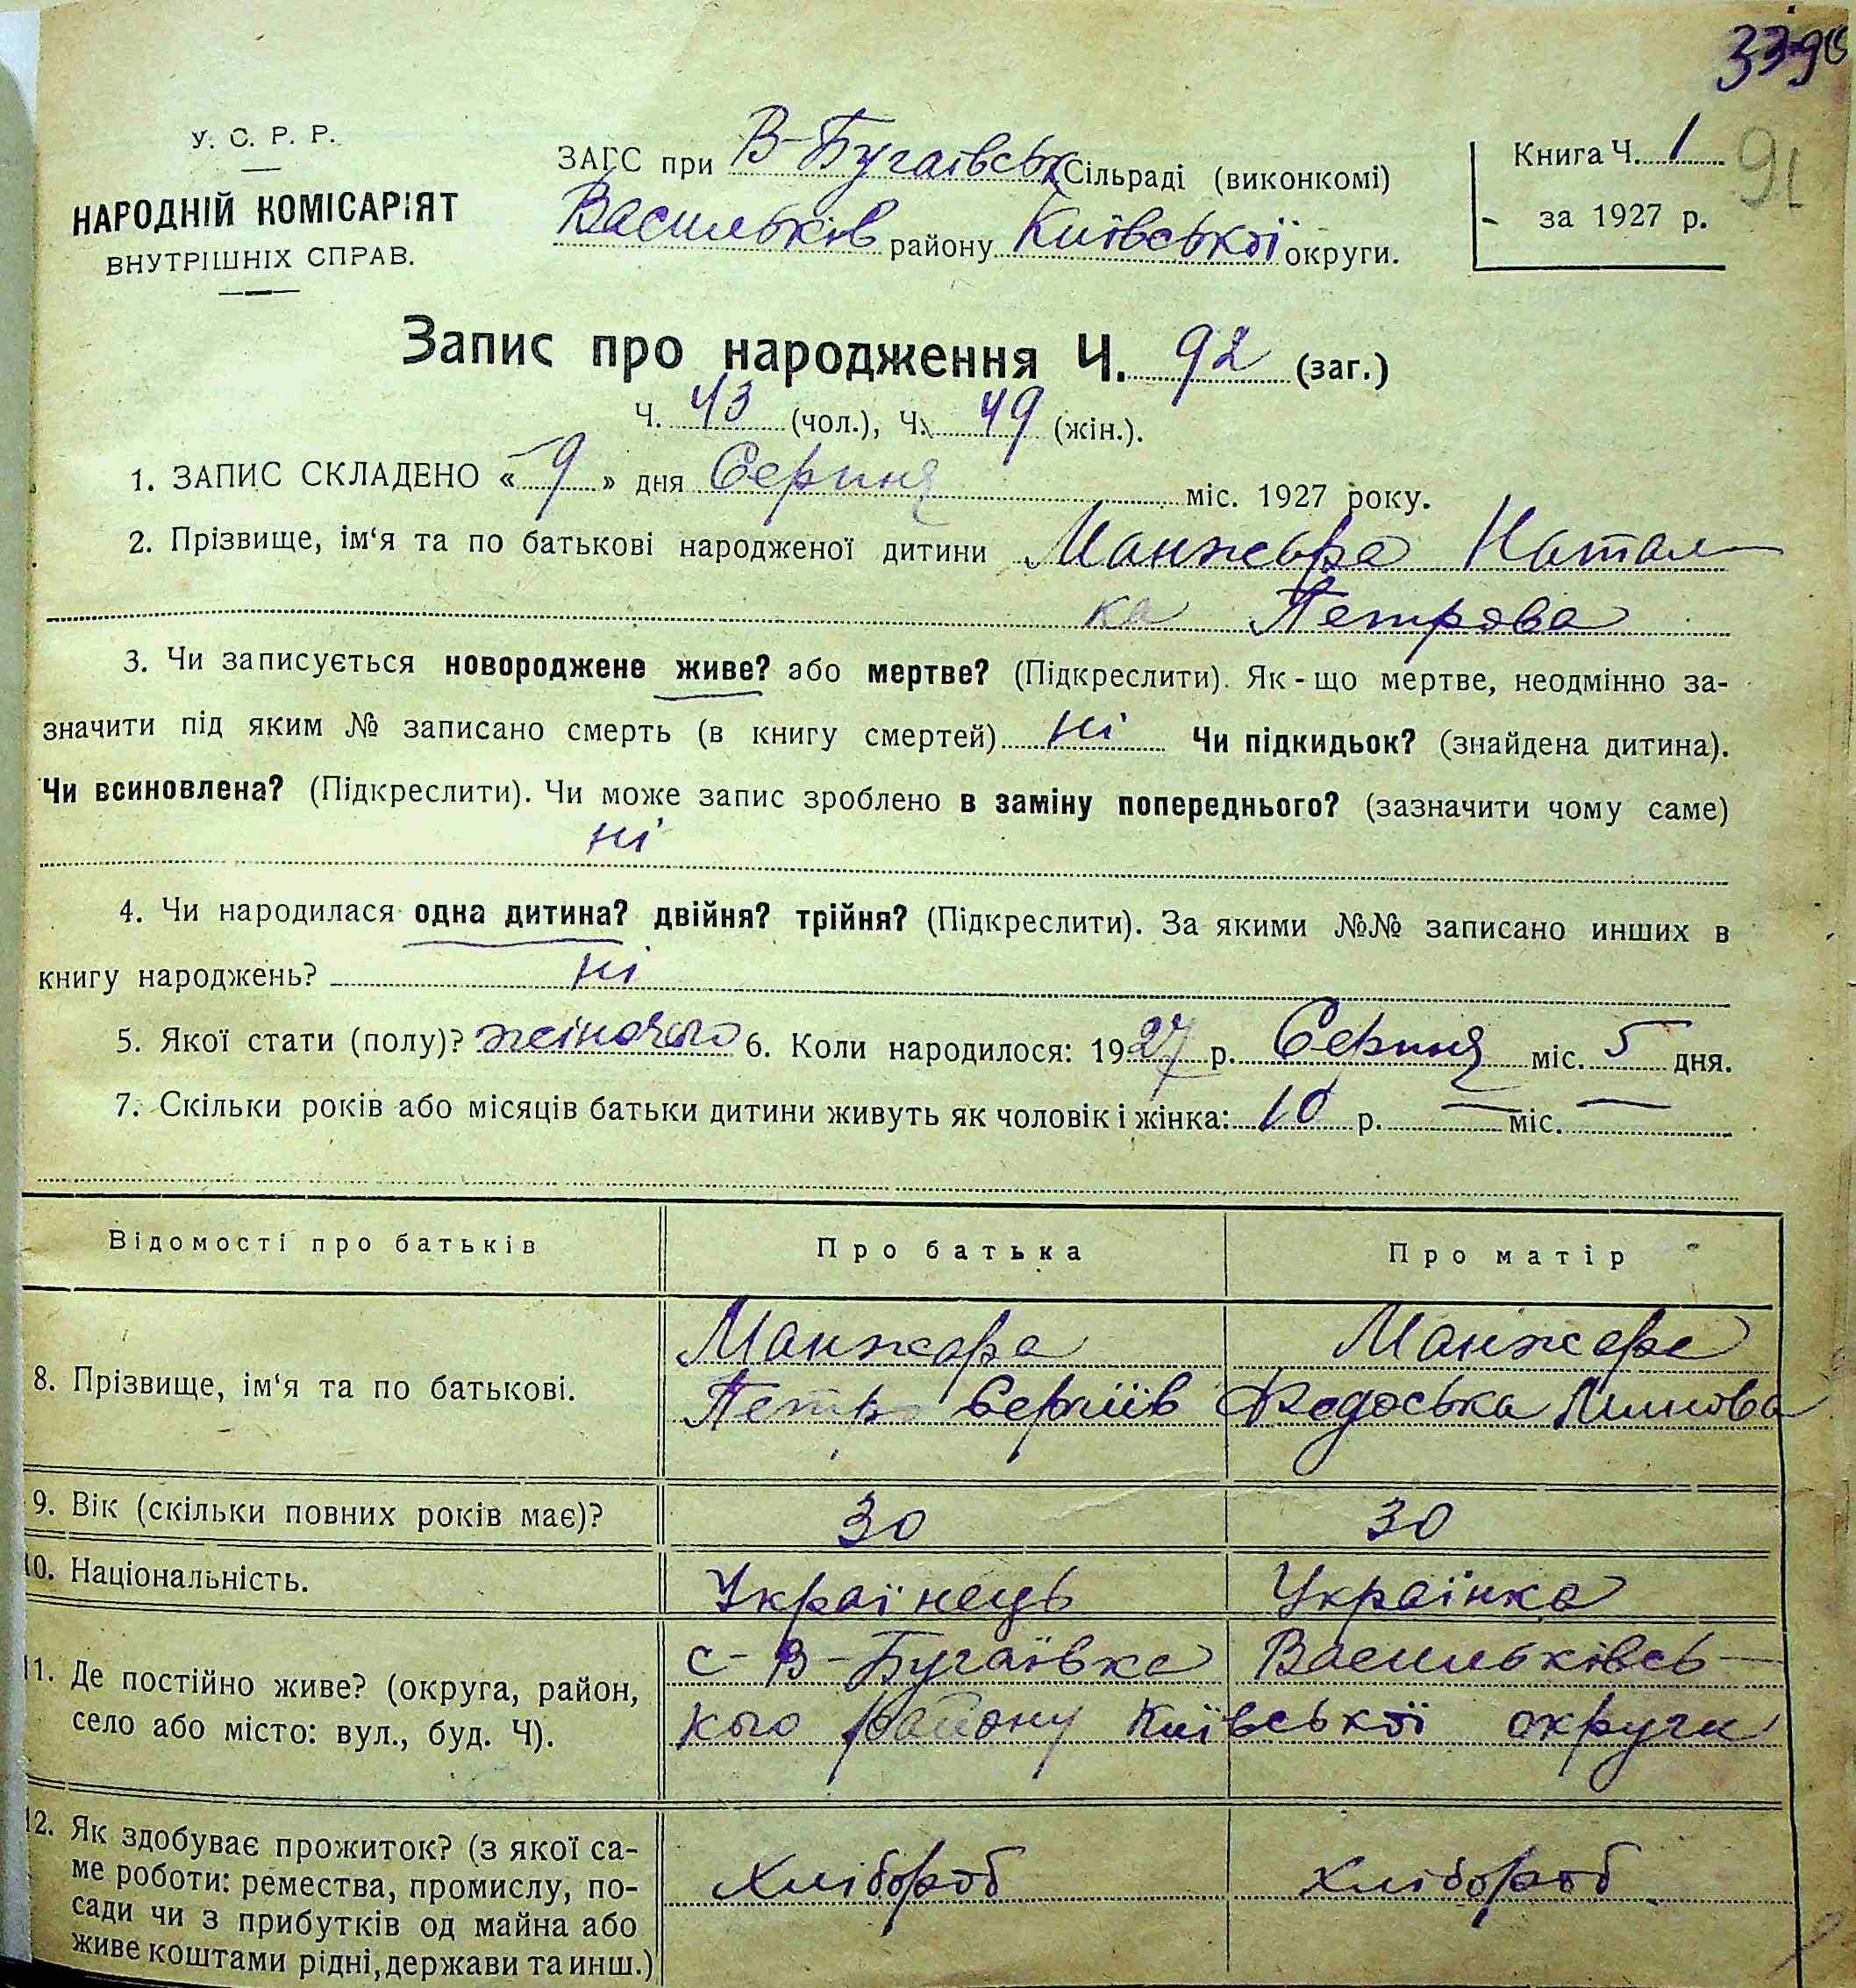 339
91
У. С. Р. Р.
НАРОДНІЙ КОМІСАРІЯТ
ВНУТРІШНІХ СПРАВ.
ЗАГС при В-Бугаївськ Сільраді (виконкомі)
Васильків району Київської округи.
Книга Ч. 1
за 1927 р.
Запис про народження Ч. 92 (заг.)
Ч. 43 (чол.), Ч. 49 (жін.).
1. ЗАПИС СКЛАДЕНО « 9 » дня Серпня міс. 1927 року.
2. Прізвище, ім‘я та по батькові народженої дитини Манжара Натал-
ка Петрова
3. Чи записується новороджене живе? або мертве? (Підкреслити). Як-що мертве, неодмінно за-
значити під яким № записано смерть (в книгу смертей) ні Чи підкидьок? (знайдена дитина).
Чи всиновлена? (Підкреслити). Чи може запис зроблено в заміну попереднього? (зазначити чому саме)
ні
4. Чи народилася одна дитина? двійня? трійня? (Підкреслити). За якими №№ записано инших в
книгу народжень? ні
5. Якої стати (полу)? жіночого 6. Коли народилося: 1927 р. Серпня міс. 5 дня.
7. Скільки років або місяців батьки дитини живуть як чоловік і жінка: 10 р. — міс. —
Відомості про батьків Про батька Про матір
8. Прізвище, ім‘я та по батькові. Манжара Манжара
Петро Сергіїв Федоська Пимнова
9. Вік (скільки повних років має)? 30 30
10. Національність. Українець Українка
11. Де постійно живе? (округа, район, с-В-Бугаївка Васильківсь-
село або місто: вул., буд. Ч). кого району Київської округи
12. Як здобуває прожиток? (з якої са-
ме роботи: ремества, промислу, по- Хлібороб Хлібороб
сади чи з прибутків од майна або
живе коштами рідні, держави та инш.)